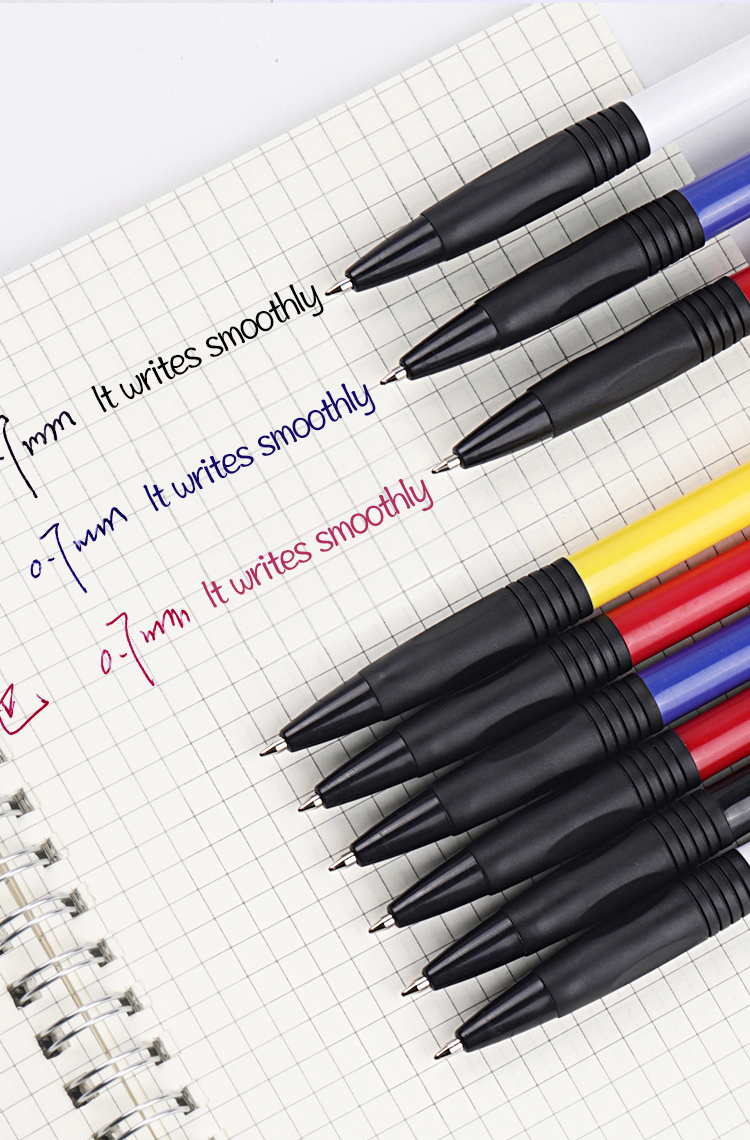 7mm It writes smoothly
0.7mm It writes smoothly
0.7mm It writes smoothly